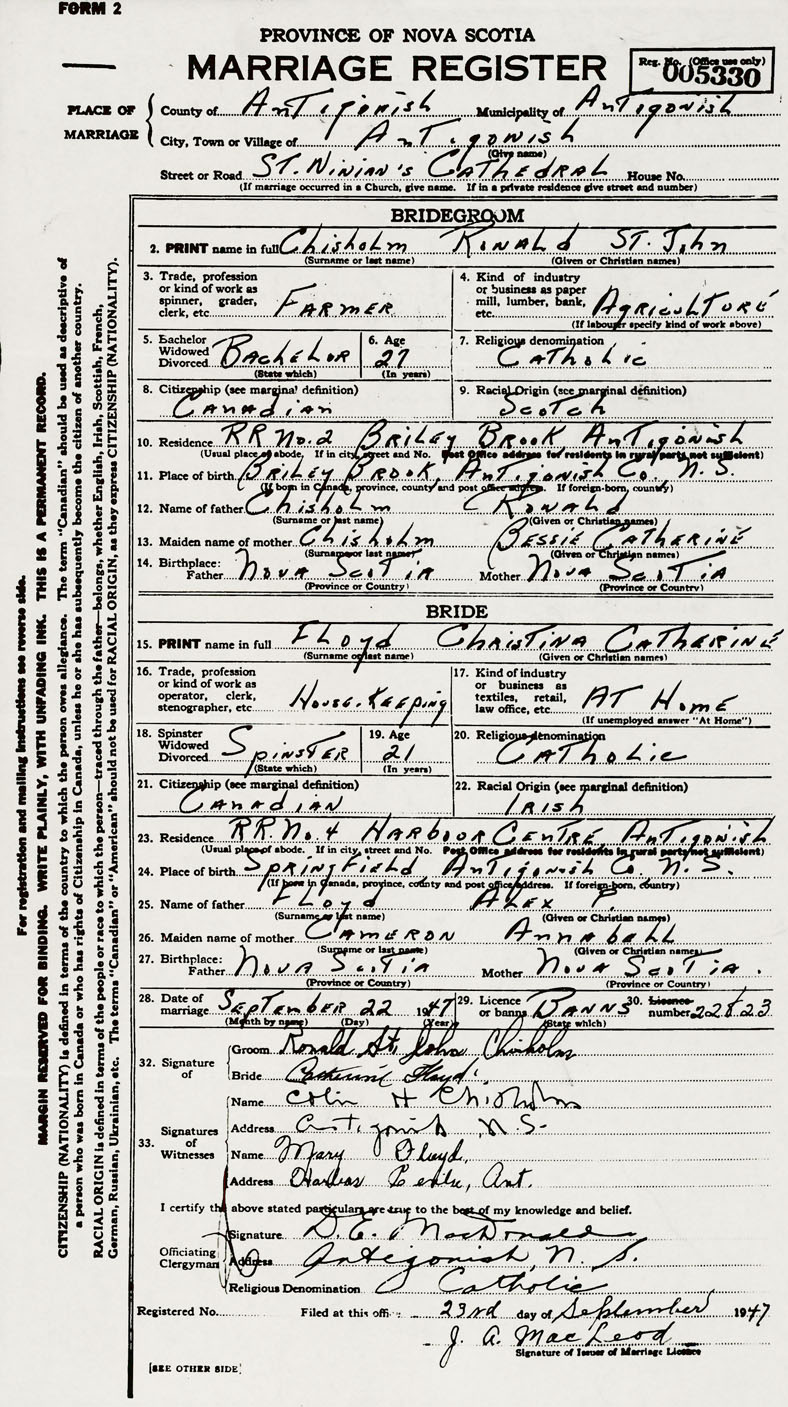 FORM 2
PROVINCE OF NOVA SCOTIA
MARRIAGE REGISTER
Reg. No. (Office use only)
005330
PLACE OF MARRIAGE
County of Antigonish Municipality of Antigonish
City, Town or Village of Antigonish
(Give name)
Street or Road St. Ninian's Cathedral House No.
(If marriage occurred in a Church, give name. If in a private residence give street and number)
BRIDEGROOM
2. PRINT name in full Chisholm Ronald St. John
(Surname or last name) (Given or Christian names)
3. Trade, profession or kind of work as spinner, grader, clerk, etc. Farmer
4. Kind of industry or business as paper mill, lumber, bank, etc. Agriculture
(If labourer specify kind of work above)
5. Bachelor Widowed Divorced Bachelor
(State which)
6. Age 27
(In years)
7. Religious denomination Catholic
8. Citizenship (see marginal definition) Canadian
9. Racial Origin (see marginal definition) Scotch
10. Residence RR No. 2 Briley Brook Antigonish
(Usual place of abode. If in city, street and No. Post Office address for residents in rural parts not sufficient)
11. Place of birth Briley Brook, Antigonish Co. N.S.
(If born in Canada, province, county and post office address. If foreign-born, country)
12. Name of father Chisholm Ronald
(Surname or last name) (Given or Christian names)
13. Maiden name of mother Chisholm Bessie Catherine
(Surname or last name) (Given or Christian names)
14. Birthplace: Father Nova Scotia Mother Nova Scotia
(Province or Country) (Province or Country)
BRIDE
15. PRINT name in full Floyd Christina Catherine
(Surname or last name) (Given or Christian names)
16. Trade, profession or kind of work as operator, clerk, stenographer, etc. House-Keeping
17. Kind of industry or business as textiles, retail, law office, etc. At Home
(If unemployed answer "At Home")
18. Spinster Widowed Divorced Spinster
(State which)
19. Age 21
(In years)
20. Religious denomination Catholic
21. Citizenship (see marginal definition) Canadian
22. Racial Origin (see marginal definition) Irish
23. Residence RR. No. 4 Harbour Centre Antigonish
(Usual place of abode. If in city, street and No. Post Office address for residents in rural parts not sufficient)
24. Place of birth Springfield Antigonish Co. N.S.
(If born in Canada, province, county and post office address. If foreign-born, country)
25. Name of father Floyd Alex F.
(Surname or last name) (Given or Christian names)
26. Maiden name of mother Cameron Annabell
(Surname or last name) (Given or Christian names)
27. Birthplace: Father Nova Scotia Mother Nova Scotia.
(Province or Country) (Province or Country)
28. Date of marriage September 22 1947
(Month by name) (Day) (Year)
29. Licence or banns Banns
(State which)
30. Licence number 22823
32. Signature of
Groom Ronald St. John Chisholm
Bride Catherine Floyd
33. Signatures of Witnesses
Name Colin H Chisholm
Address Antigonish N.S.
Name Mary Floyd,
Address Harbour Centre, Ant.
I certify the above stated particulars are true to the best of my knowledge and belief.
Officiating Clergyman
Signature D. E. MacDonald
Address Antigonish, N. S.
Religious Denomination Catholic
Registered No. Filed at this office 23rd day of September 1947
J. A. MacLeod
Signature of Issuer of Marriage Licence
[SEE OTHER SIDE]
For registration and mailing instructions see reverse side.
MARGIN RESERVED FOR BINDING. WRITE PLAINLY, WITH UNFADING INK. THIS IS A PERMANENT RECORD.
CITIZENSHIP (NATIONALITY) is defined in terms of the country to which the person owes allegiance. The term "Canadian" should be used as descriptive of
a person who was born in Canada or who has rights of Citizenship in Canada, unless he or she has subsequently become the citizen of another country.
RACIAL ORIGIN is defined in terms of the people or race to which the person—traced through the father—belongs, whether English, Irish, Scottish, French,
German, Russian, Ukrainian, etc. The terms "Canadian" or "American" should not be used for RACIAL ORIGIN, as they express CITIZENSHIP (NATIONALITY).